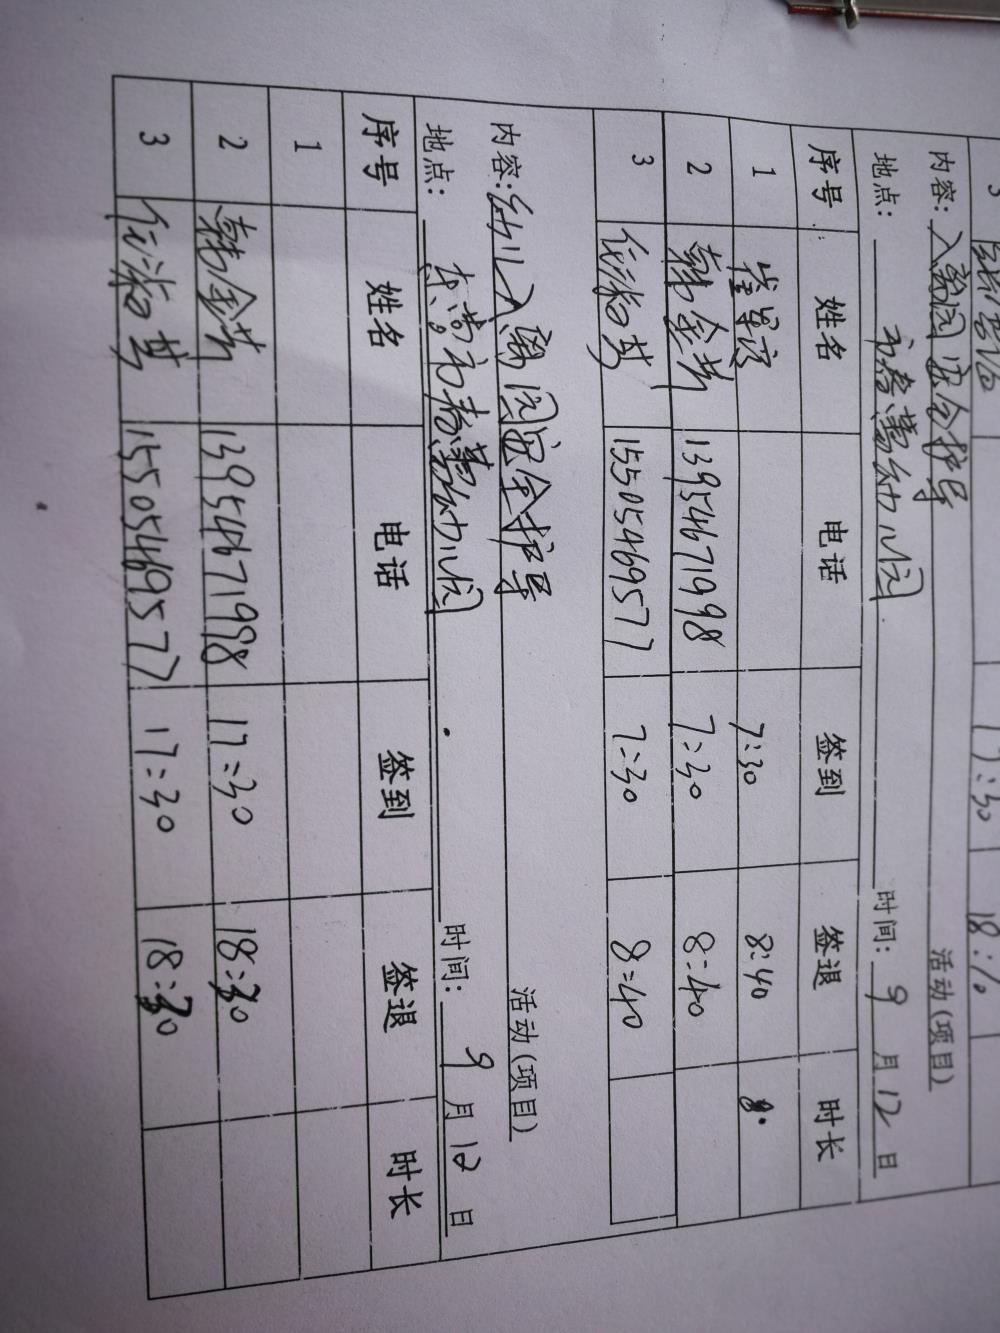 3 17:30 18:10
内容:入离园安全护导 活动(项目)
地点: 幼儿园 时间: 9 月 12 日
序号 姓名 电话 签到 签退 时长
1 7:30 8:40
2 韩金芳 13954671998 7:30 8:40
3 15505469577 7:30 8:40
内容:幼儿入离园安全护导 活动(项目)
地点: 幼儿园 时间: 9 月 12 日
序号 姓名 电话 签到 签退 时长
1
2 韩金芳 13954671998 17:30 18:30
3 15505469577 17:30 18:30